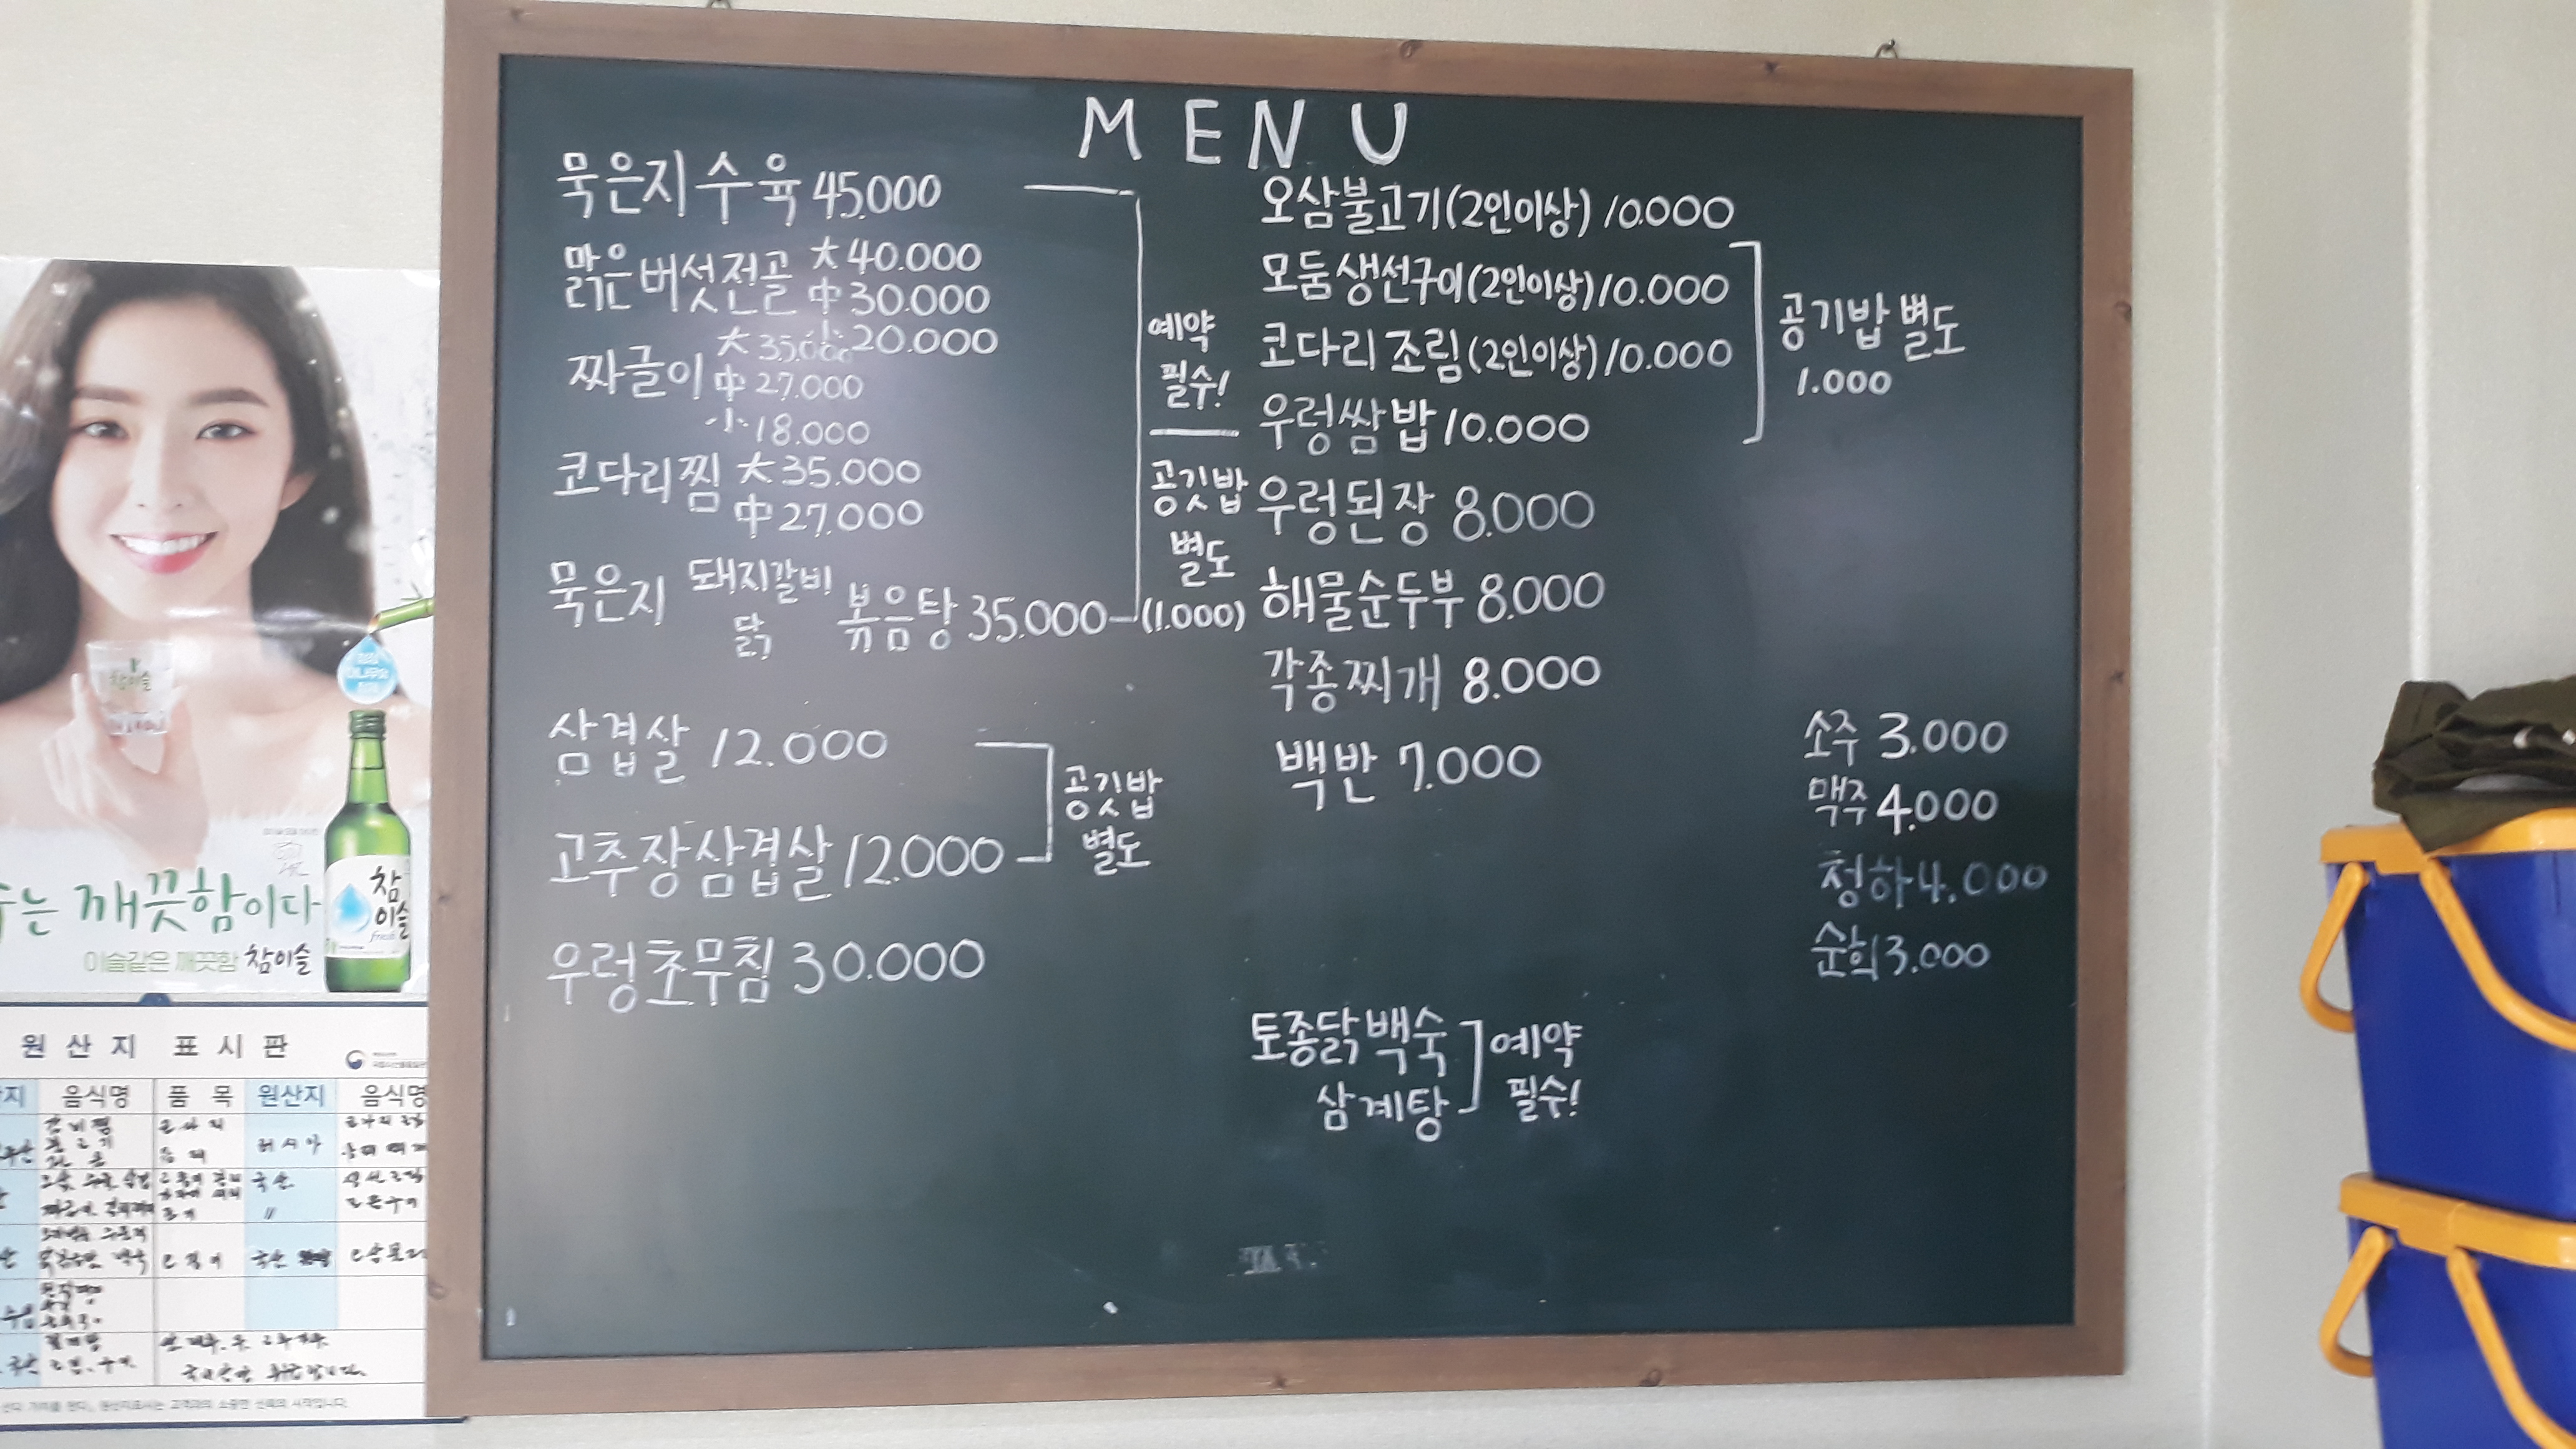 MENU
묵은지수육 45.000
맑은버섯전골 大 40.000
中 30.000
小 20.000
짜글이 大 35.000
中 27.000
小 18.000
코다리찜 大 35.000
中 27.000
묵은지 돼지갈비 닭 볶음탕 35.000
예약
필수!
공깃밥
별도
(1.000)
삼겹살 12.000
고추장삼겹살 12.000
공깃밥
별도
우렁초무침 30.000
오삼불고기(2인이상) 10.000
모둠생선구이(2인이상) 10.000
코다리조림(2인이상) 10.000
우렁쌈밥 10.000
공기밥 별도
1.000
우렁된장 8.000
해물순두부 8.000
각종찌개 8.000
백반 7.000
소주 3.000
맥주 4.000
청하 4.000
순희 3.000
토종닭백숙
삼계탕
예약
필수!
참이슬
는 깨끗함이다
이슬같은 깨끗함 참이슬
참이슬
fresh
원산지 표시판
음식명 품목 원산지 음식명
러시아
국산
〃
국산